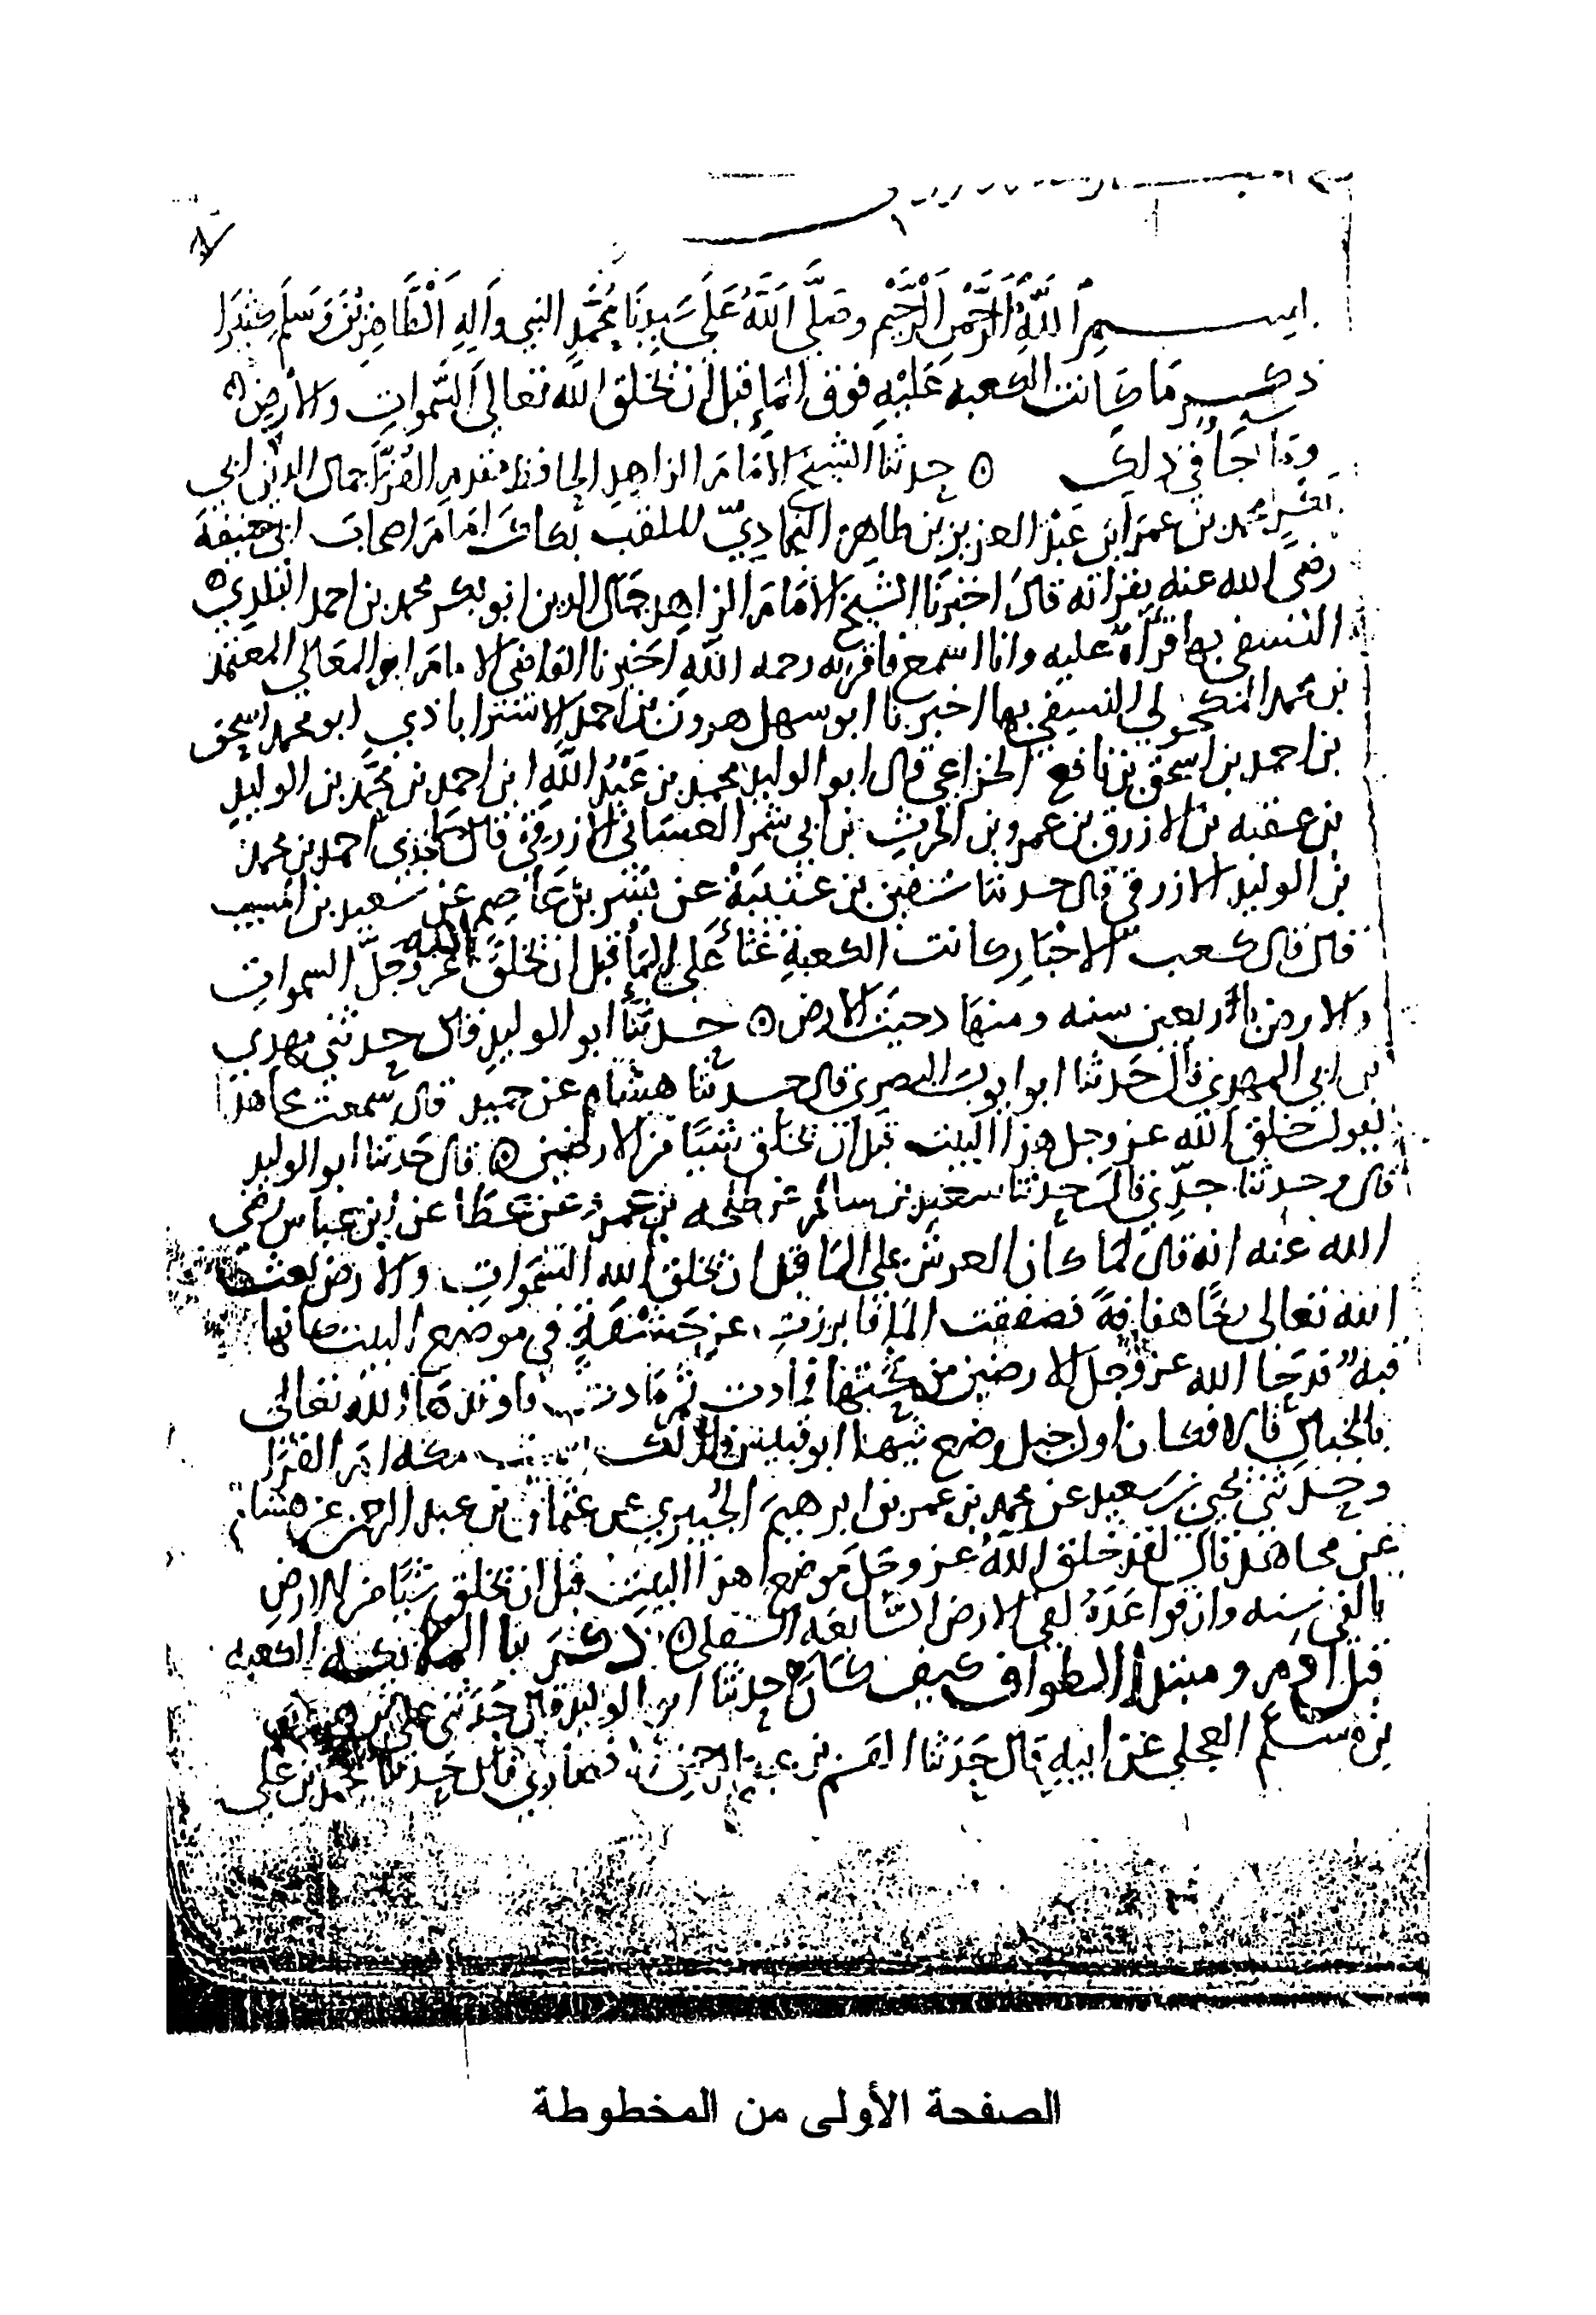 بســـم الله الرحمن الرحيم وصلى الله على سيدنا محمد النبي واله الطاهرين وسلم
ذكـــر ما كانت الكعبه عليه فوق الماء قبل ان يخلق الله تعالى السموات والارض
وما جا في ذلك ه حدثنا الشيخ الامام الزاهد الحافظ مقدم القرا جمال الدين ابي
محمد بن عمر ابن عبد العزيز بن طاهر الملقب بكاك امام اصحاب ابي حنيفه
رضي الله عنه بقراته قال اخبرنا الشيخ الامام الزاهد جمال الدين ابو بكر محمد بن احمد البلدي
النسفي بها قرأة عليه وانا اسمع فاقر به رحمه الله اخبرنا القاضي الامام ابو المعالي المعتمد
بن محمد المكحولي النسفي بها اخبرنا ابو سهل هرون بن احمد الاستراباذي ابو محمد اسحق
بن احمد بن اسحق بن نافع الخزاعي قال ابو الوليد محمد بن عبد الله ابن احمد بن محمد بن الوليد
بن عقبه بن الازرق بن عمرو بن الحرث بن ابي شمر الغساني الازرقي قال جدي احمد بن محمد
بن الوليد الازرقي قال حدثنا سفين بن عيينة عن بشر بن عاصم عن سعيد بن المسيب
قال قال كعب الاحبار كانت الكعبة غثأ على الماء قبل ان يخلق الله عز وجل السموات
والارض باربعين سنه ومنها دحيت الارض ه حدثنا ابو الوليد قال حدثني مهدي
بن ابي المهدي قال حدثنا ابو ايوب البصري قال حدثنا هشام عن حميد قال سمعت مجاهدا
يقول خلق الله عز وجل هذا البيت قبل ان يخلق شيا من الارضين ه قال حدثنا ابو الوليد
قال وحدثنا جدي قال حدثنا سعيد بن سالم عن طلحه بن عمرو عن عطا عن ابن عباس رضي
الله عنه انه قال لما كان العرش على الما قبل ان يخلق الله السموات والارض بعث
الله تعالى ريحا هفافة فصفقت الما فابرزت عن خشفة في موضع البيت كانها
قبة فدحا الله عز وجل الارضين من تحتها فمادت ثم مادت فاوتدها الله تعالى
بالجبال فكان اول جبل وضع فيها ابو قبيس فلذلك سميت مكه ام القرا
وحدثني يحيى بن سعيد عن محمد بن عمر بن ابرهيم الجبيري عن عثمان بن عبد الرحمن عن هشام
عن مجاهد قال لقد خلق الله عز وجل موضع هذا البيت قبل ان يخلق شيا من الارض
بالفي سنه وان قواعده لفي الارض السابعه السفلى ه ذكر بنا الملائكه الكعبه
قبل ادم ومبتدا الطواف كيف كان حدثنا ابو الوليد قال حدثني علي بن هرون
بن مسلم العجلي عن ابيه قال حدثنا القسم بن عبد الرحمن الانصاري قال حدثنا محمد بن علي
الصفحة الأولى من المخطوطة